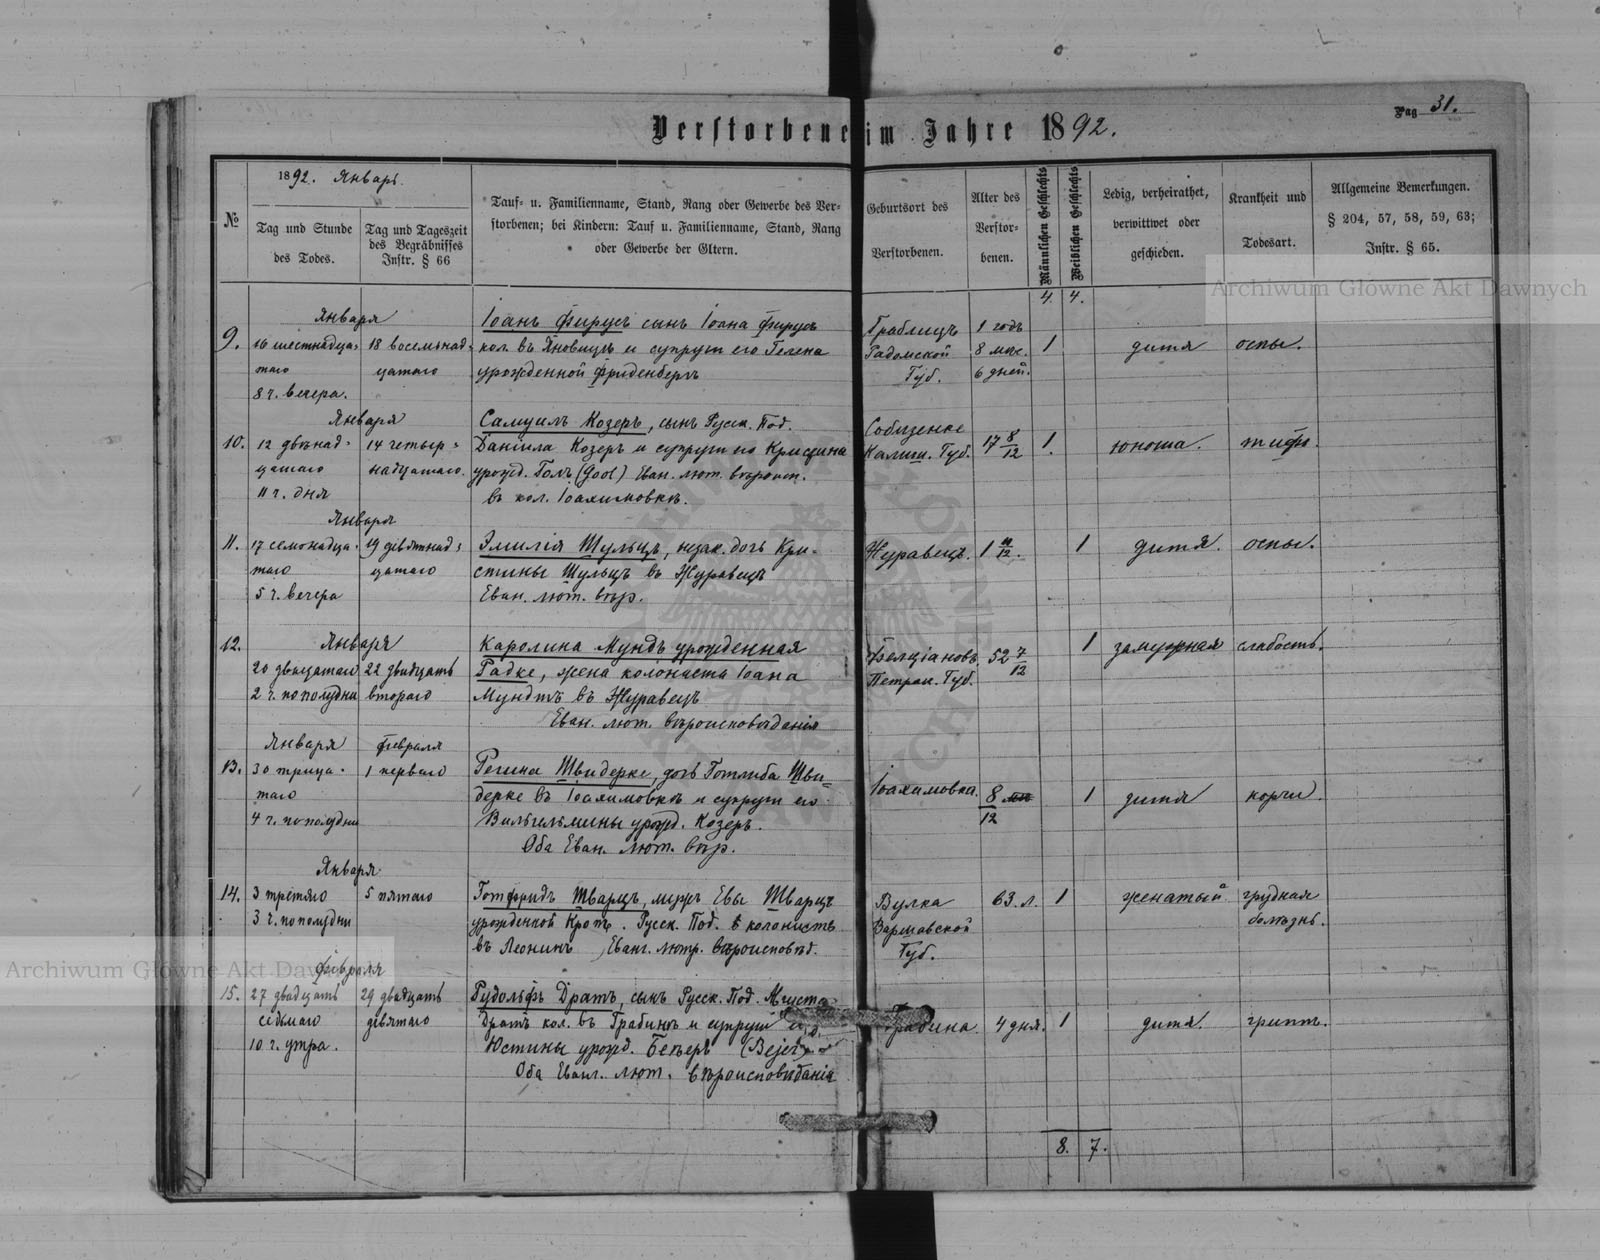 Pag 31.
Verstorbene im Jahre 1892.
№
1892. Январь.
Tag und Stunde
des Todes.
Tag und Tageszeit
des Begräbnisses
Instr. § 66
Tauf- u. Familienname, Stand, Rang oder Gewerbe des Ver-
storbenen; bei Kindern: Tauf u. Familienname, Stand, Rang
oder Gewerbe der Eltern.
Geburtsort des
Verstorbenen.
Alter des
Verstor-
benen.
Männlichen Geschlechts
Weiblichen Geschlechts
Ledig, verheirathet,
verwittwet oder
geschieden.
Krankheit und
Todesart.
Allgemeine Bemerkungen.
§ 204, 57, 58, 59, 63;
Instr. § 65.
4. 4.
9.
Января
16 шестнадца-
таго
8 ч. вечера.
18 восемьнад-
цатаго
Іоанъ Фирусъ сынъ Іоана Фирусъ
кол. въ Яновицѣ и супруги его Гелена
урожденной Фриденбергъ
Граблицъ
Радомской
Губ.
1 годъ
8 мѣс.
6 дней.
1
дитя
оспы.
10.
Января
12 двѣнад-
цатаго
11 ч. дня
14 четыр-
надцатаго.
Самуилъ Козеръ, сынъ Русск. Под.
Даніила Козеръ и супруги его Кристина
урожд. Голъ (Gool) Еван. лют. вѣроисп.
въ кол. Іоахимовкѣ.
Собизенке
Калиш. Губ.
17 8/12
1.
юноша.
тифъ.
11.
Января
17 семонадца-
таго
5 ч. вечера
19 девятнад-
цатаго
Эмилія Шульцъ, незак. дочь Кри-
стины Шульцъ въ Журавецъ
Еван. лют. вѣр.
Журавецъ.
1 11/12.
1
дитя.
оспы.
12.
Января
20 двацатаго
2 ч. пополудни
22 двадцать
второго
Каролина Мундъ урожденная
Радке, жена колониста Іоана
Мундтъ въ Журавецъ
Еван. лют. вѣроисповѣданія
Фелціановъ
Петрак. Губ.
52 7/12
1
замужная
слабость.
13.
Января
30 трица-
таго
4 ч. пополудни
Февраля
1 перваго
Регина Швидерке, дочь Готлиба Шви-
дерке въ Іоахимовкѣ и супруги его
Вильгельмины урожд. Козеръ.
Оба Еван. лют. вѣр.
Іоахимовка.
8/12
1
дитя
корчи.
14.
Января
3 третяго
3 ч. пополудни
5 пятаго
Готфридъ Шварцъ, мужъ Евы Шварцъ
урожденной Кротъ. Русск. Под. колонистъ
въ Леснинъ Еванг. лютр. вѣроисповѣд.
Вулка
Варшавской
Губ.
63. л.
1
женатый
грудная
болѣзнь.
15.
Февраля
27 двадцать
седьмаго
10 ч. утра.
29 двадцать
девятаго
Рудольфъ Дратъ, сынъ Русск. Под. Августа
Дратъ кол. въ Грабинѣ и супруги его
Юстины урожд. Бейеръ (Bejer)
Оба Еванг. лют. вѣроисповѣданія
Грабина.
4 дня.
1
дитя.
гриппъ.
8. 7.
Archiwum Główne Akt Dawnych
Archiwum Główne Akt Dawnych